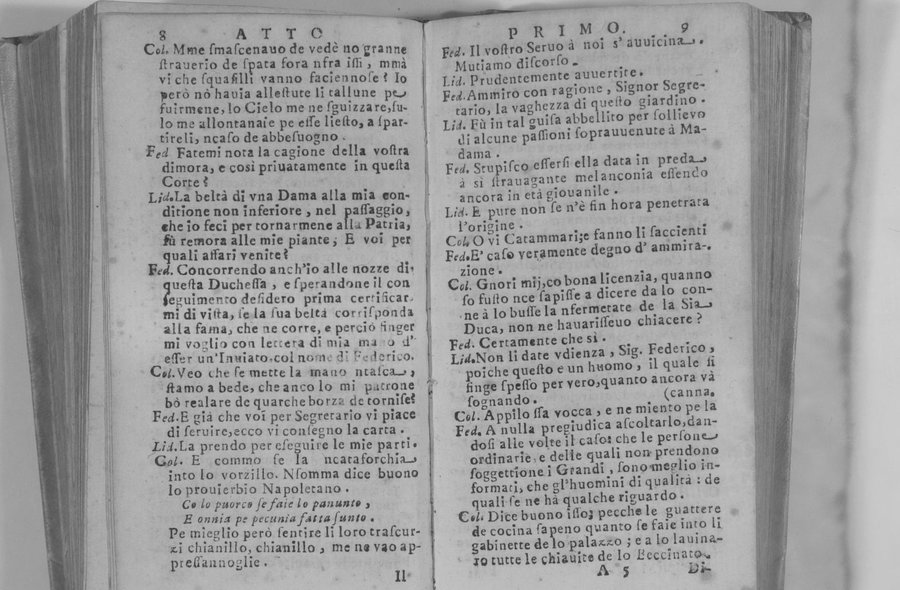 8 ATTO
Col. Mme ſmaſcenauo de vedè no granne
ſtrauerio de ſpata fora nfra iſſi, mmà
vi che ſquaſilli vanno faciennoſe? Io
però nò hauia alleſtute li tallune pe
fuirmene, lo Cielo me ne ſguizzare, ſu-
lo me allontanaie pe eſſe lieſto, a ſpar-
tireli, ncaſo de abbeſuogno.
Fed Fatemi nota la cagione della voſtra
dimora, e così priuatamente in queſta
Corte?
Lid. La beltà di vna Dama alla mia con-
ditione non inferiore, nel paſſaggio,
che io feci per tornarmene alla Patria,
fù remora alle mie piante; E voi per
quali affari venite?
Fed. Concorrendo anch'io alle nozze di
queſta Ducheſſa, e ſperandone il con
ſeguimento deſidero prima certificar
mi di viſta, ſe la ſua beltà corriſponda
alla fama, che ne corre, e perciò finger
mi voglio con lettera di mia mano d'
eſſer un'Inuiato, col nome di Federico.
Col. Veo che ſe mette la mano ntaſca,
ſtamo a bede, che anco lo mi patrone
bò realare de quarche borza de torniſe?
Fed. E già che voi per Segretario vi piace
di ſeruire, ecco vi conſegno la carta.
Lid. La prendo per eſeguire le mie parti.
Col. E commo ſe la ncataforchia
into lo vorzillo. Nſomma dice buono
lo prouierbio Napoletano.
Co lo puorco ſe faie lo panunto,
E onnia pe pecunia fatta ſunto.
Pe mieglio però ſentire li loro traſcur-
zi chianillo, chianillo, me ne vao ap-
preſſannoglie.
Il
PRIMO. 9
Fed. Il voſtro Seruo à noi s'auuicina.
Mutiamo diſcorſo.
Lid. Prudentemente auuertite.
Fed. Ammiro con ragione, Signor Segre-
tario, la vaghezza di queſto giardino.
Lid. Fù in tal guiſa abbellito per ſollieuo
di alcune paſſioni ſoprauuenute à Ma-
dama.
Fed. Stupiſco eſſerſi ella data in preda
à sì ſtrauagante melanconia eſſendo
ancora in età giouanile.
Lid. E pure non ſe n'è fin hora penetrata
l'origine.
Col. O vi Catammari; e fanno li faccienti
Fed. E' caſo veramente degno d'ammira-
zione.
Col. Gnori mij, co bona licenzia, quanno
ſo fuſto nce ſapiſſe a dicere da lo con-
ne à lo buſſe la nfermetate de la Sia
Duca, non ne hauariſſeuo chiacere?
Fed. Certamente che sì.
Lid. Non li date vdienza, Sig. Federico,
poiche queſto e un huomo, il quale ſi
finge ſpeſſo per vero, quanto ancora và
ſognando. (canna.
Col. Appilo ſſa vocca, e ne miento pe la
Fed. A nulla pregiudica aſcoltarlo, dan-
doſi alle volte il caſo: che le perſone
ordinarie, e delle quali non prendono
ſoggettione i Grandi, ſono meglio in-
formati, che gl'huomini di qualità: de
quali ſe ne hà qualche riguardo.
Col. Dice buono iſſo; pecche le guattere
de cocina ſapeno quanto ſe faie into li
gabinette de lo palazzo; e a lo lauina-
ro tutte le chiauite de lo Ceccinato.
A 5 Di-